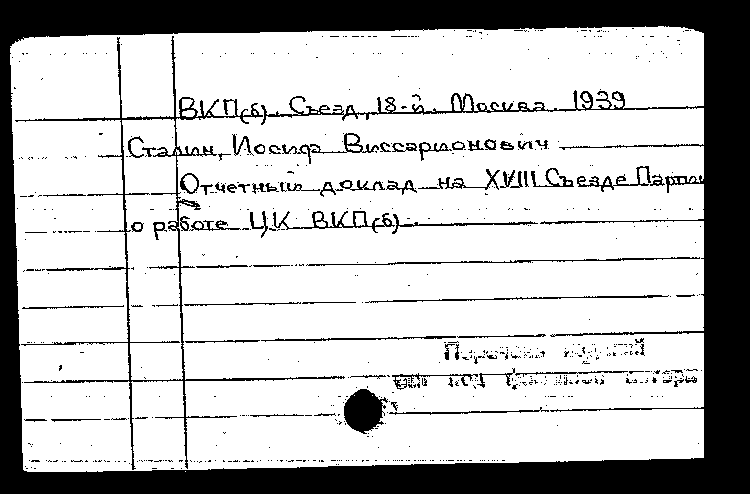 ВКП(б). Съезд, 18-й. Москва. 1939
Сталин, Иосиф Виссарионович.
Отчетный доклад на XVIII Съезде Партии
о работе ЦК ВКП(б).
Перечень изданий
под фамилией автора